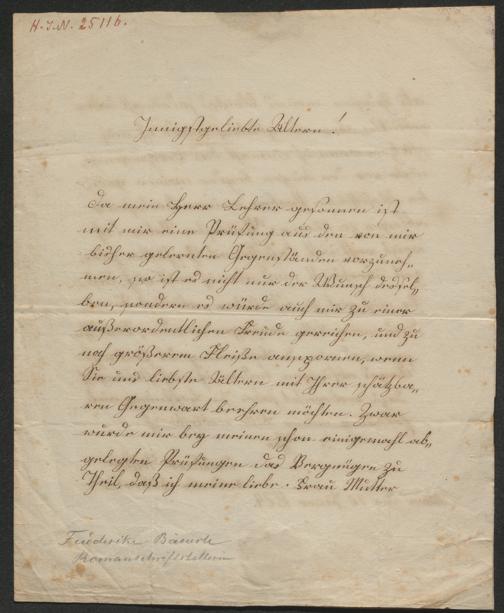 H.I.N. 25116.
Innigstgeliebte Ältern!
Da mein Herr Lehrer gesonnen ist
mit mir eine Prüfung aus den von mir
bisher gelernten Gegenständen vorzuneh„
men, so ist es nicht nur der Wunsch dessel„
ben, sondern es würde auch mir zu einer
außerordentlichen Freude gereichen, und zu
noch größerem Fleiße anspornen, wenn
Sie mich liebste Ältern mit Ihrer schätzba„
ren Gegenwart beehren möchten. Zwar
wurde mir bey meinen schon einigemahl ab„
gelegten Prüfungen das Vergnügen zu
Theil, daß ich meine liebe Frau Mutter
Friederike Bäuerle
Romanschriftstellerin